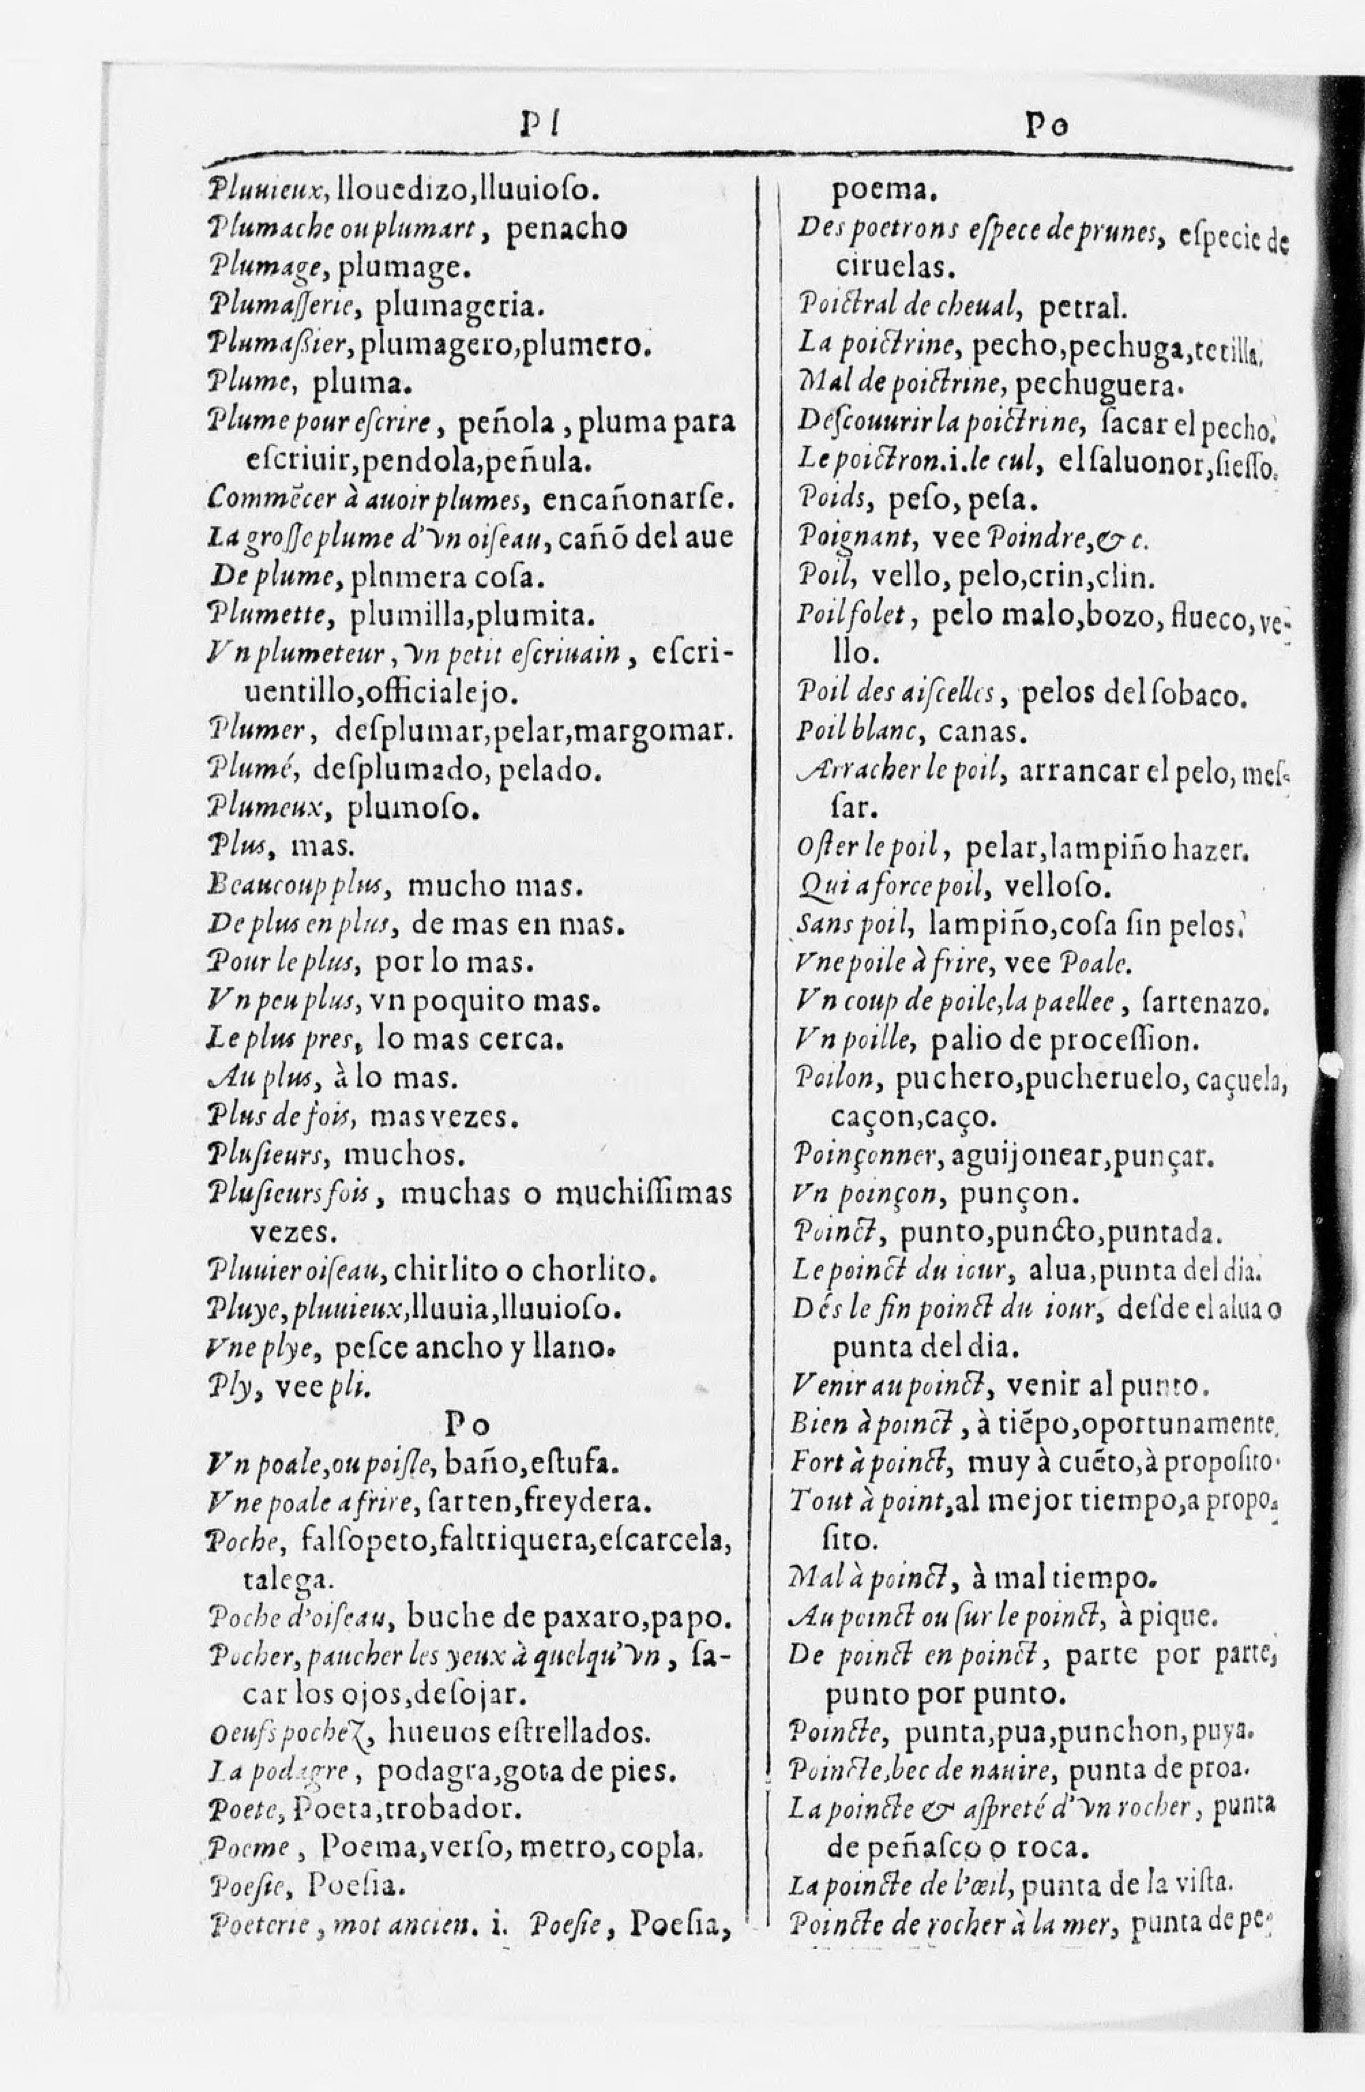 Pl
Pluuieux, llouedizo,lluuioſo.
Plumache ou plumart, penacho
Plumage, plumage.
Plumaſſerie, plumageria.
Plumaßier, plumagero,plumero.
Plume, pluma.
Plume pour eſcrire, peñola, pluma para
eſcriuir,pendola,peñula.
Commẽcer à auoir plumes, encañonarſe.
La groſſe plume d'vn oiſeau, cañõ del aue
De plume, plumera coſa.
Plumette, plumilla,plumita.
Vn plumeteur, vn petit eſcriuain, eſcri-
uentillo,officialejo.
Plumer, deſplumar,pelar,margomar.
Plumé, deſplumado, pelado.
Plumeux, plumoſo.
Plus, mas.
Beaucoup plus, mucho mas.
De plus en plus, de mas en mas.
Pour le plus, por lo mas.
Vn peu plus, vn poquito mas.
Le plus pres, lo mas cerca.
Au plus, à lo mas.
Plus de fois, mas vezes.
Pluſieurs, muchos.
Pluſieurs fois, muchas o muchiſſimas
vezes.
Pluuier oiſeau, chirlito o chorlito.
Pluye, pluuieux,lluuia,lluuioſo.
Vne plye, peſce ancho y llano.
Ply, vee pli.
Po
Vn poale,ou poiſle, baño,eſtufa.
Vne poale a frire, ſarten,freydera.
Poche, falſopeto,faltriquera,eſcarcela,
talega.
Poche d'oiſeau, buche de paxaro,papo.
Pocher, paucher les yeux à quelqu'vn, ſa-
car los ojos,deſojar.
Oeufs pochez, hueuos eſtrellados.
La podagre, podagra,gota de pies.
Poete, Poeta,trobador.
Poeme, Poema,verſo, metro,copla.
Poeſie, Poeſia.
Poeterie, mot ancien. i. Poeſie, Poeſia,
Po
poema.
Des poetrons eſpece de prunes, eſpecie de
ciruelas.
Poictral de cheual, petral.
La poictrine, pecho,pechuga,tetilla.
Mal de poictrine, pechuguera.
Deſcouurir la poictrine, ſacar el pecho.
Le poictron.i.le cul, el ſaluonor,ſieſſo.
Poids, peſo, peſa.
Poignant, vee Poindre,&c.
Poil, vello, pelo,crin,clin.
Poil folet, pelo malo,bozo, flueco, ve-
llo.
Poil des aiſcelles, pelos del ſobaco.
Poil blanc, canas.
Arracher le poil, arrancar el pelo, meſ-
ſar.
Oſter le poil, pelar,lampiño hazer.
Qui a force poil, velloſo.
Sans poil, lampiño,coſa ſin pelos.
Vne poile à frire, vee Poale.
Vn coup de poile,la paellee, ſartenazo.
Vn poille, palio de proceſſion.
Poilon, puchero,pucheruelo, caçuela,
caçon,caço.
Poinçonner, aguijonear,punçar.
Vn poinçon, punçon.
Poinct, punto,puncto,puntada.
Le poinct du iour, alua,punta del dia.
Dés le fin poinct du iour, deſde el alua o
punta del dia.
Venir au poinct, venir al punto.
Bien à poinct, à tiẽpo,oportunamente.
Fort à poinct, muy à cuẽto,à propoſito.
Tout à point,al mejor tiempo,a propo-
ſito.
Mal à poinct, à mal tiempo.
Au poinct ou ſur le poinct, à pique.
De poinct en poinct, parte por parte,
punto por punto.
Poincte, punta,pua,punchon,puya.
Poincte,bec de nauire, punta de proa.
La poincte & aſpreté d'vn rocher, punta
de peñaſco o roca.
La poincte de l'œil, punta de la viſta.
Poincte de rocher à la mer, punta de pe-